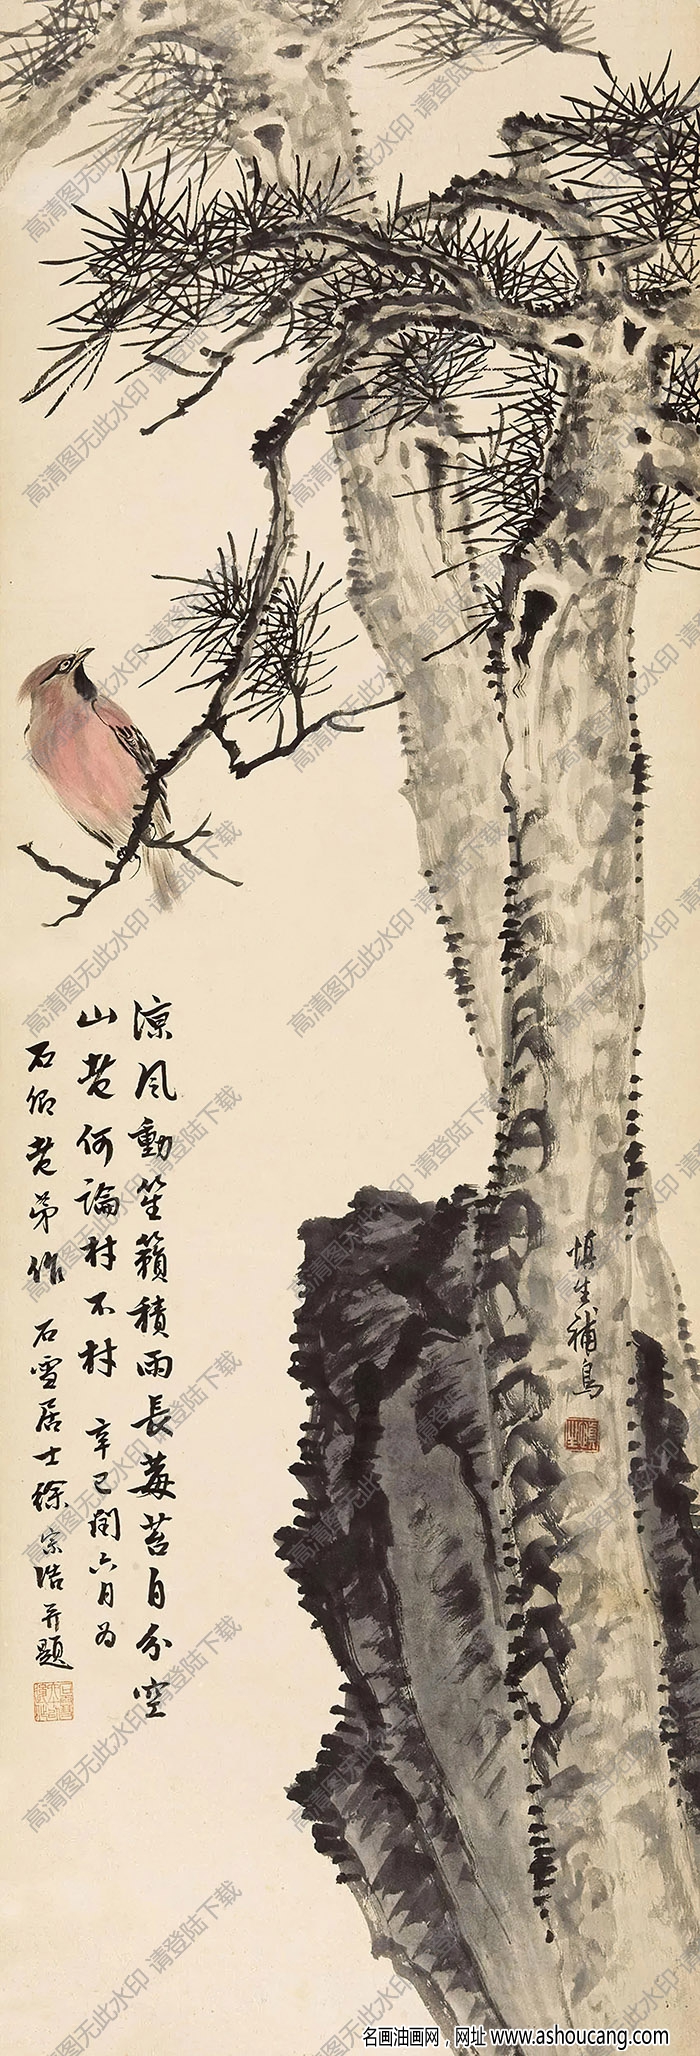 涼風動笙籟積雨長莓苔自分空
山老何論材不材 辛巳閏六月為
石卿老弟作 石雪居士徐宗浩并題
慎生補鳥
慎生
高清图无此水印 请登陆下载
名画油画网，网址 www.ashoucang.com